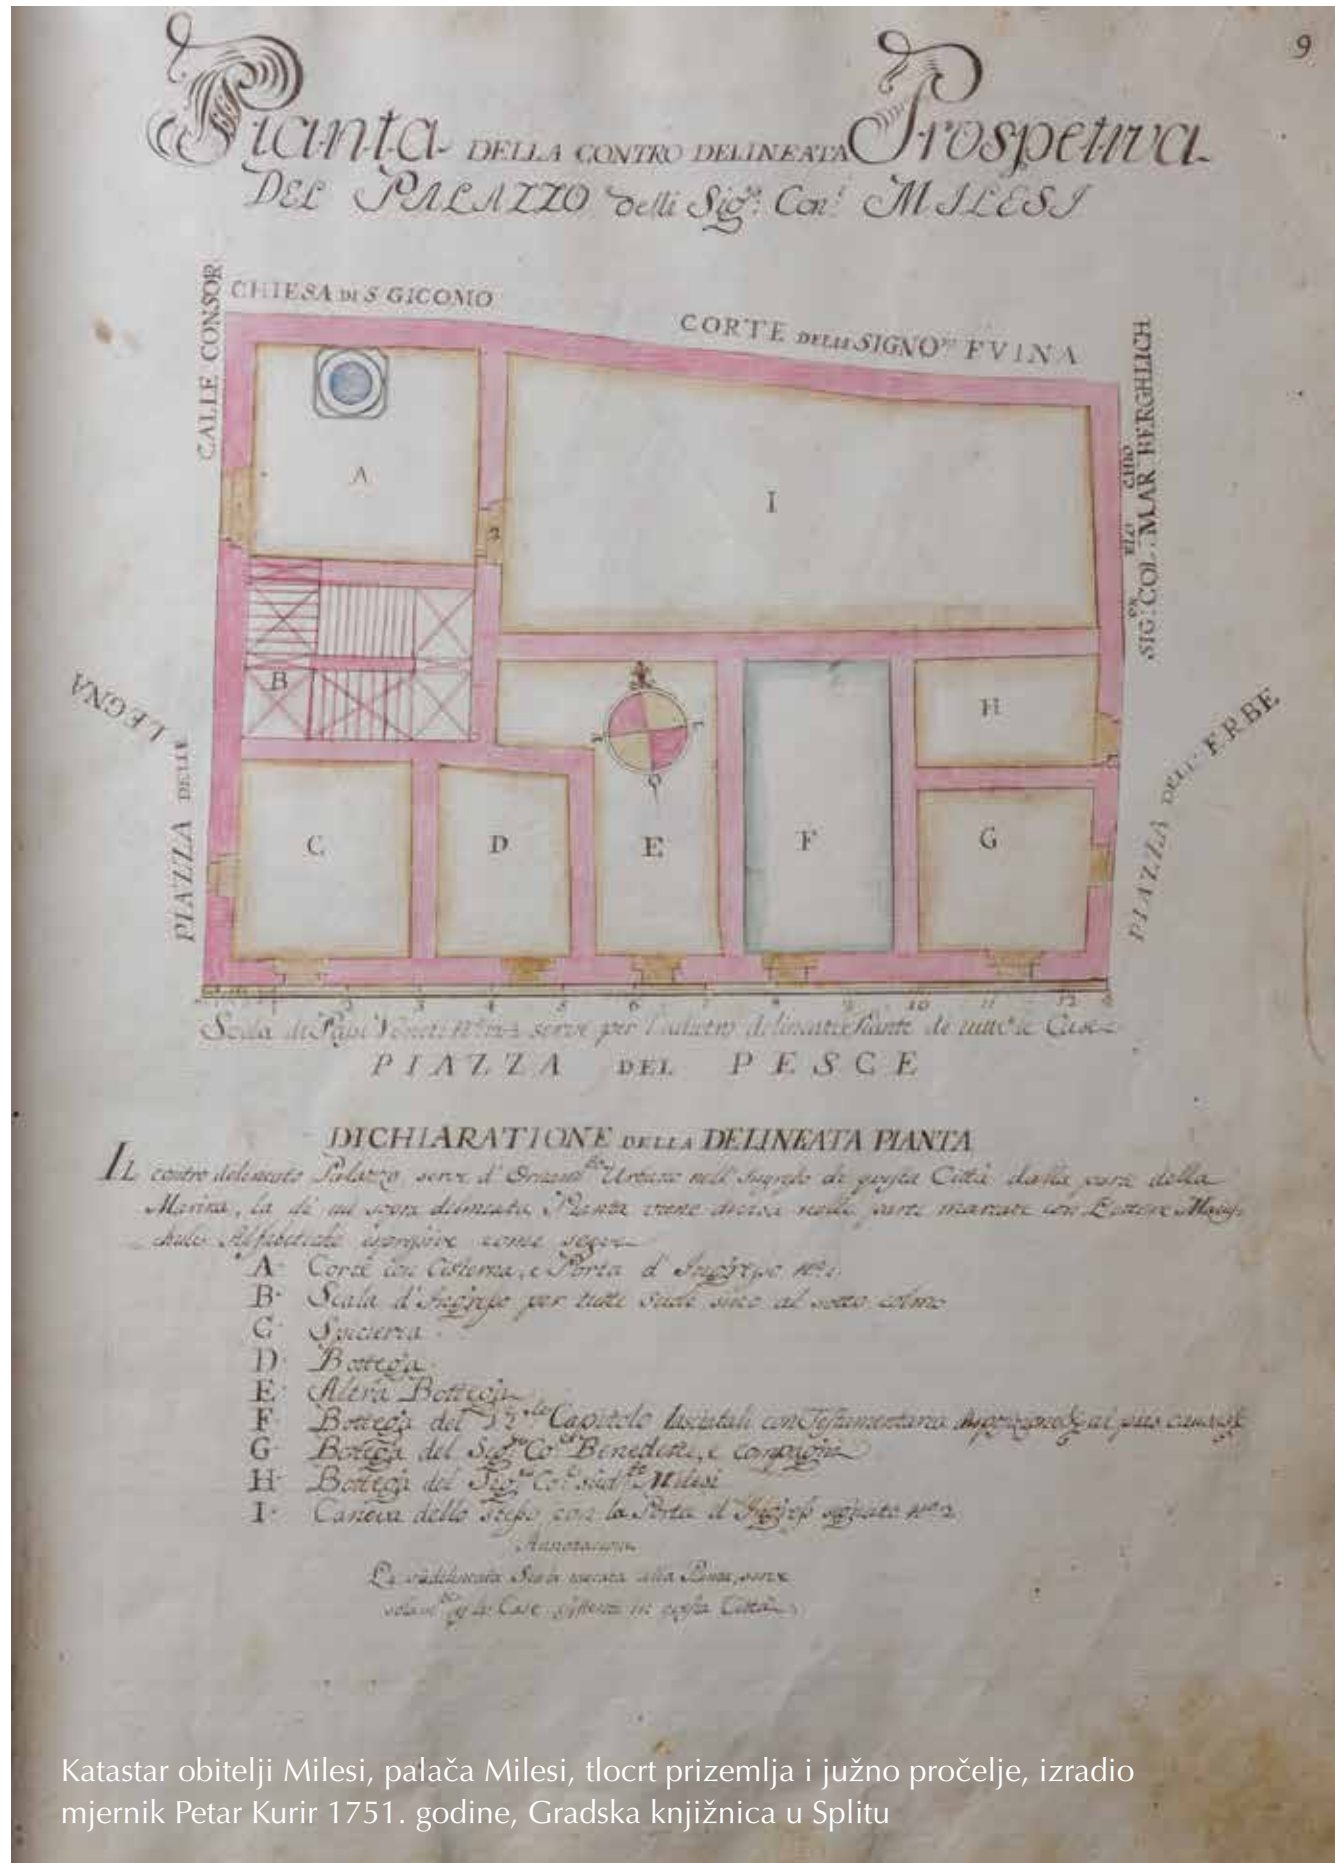 9
Pianta DELLA CONTRO DELINEATA Prospetiva
DEL PALAZZO delli Sig.ri Con.i MILESI
CALLE CONSOR
CHIESA DI S GICOMO
CORTE DELLI SIGNO.ri FVINA
SIG.or COL. MAR BERGHLICH
ELO CHIO
A
I
2
B
H
C
D
E
F
G
PIAZZA DELLE LEGNA
PIAZZA DELL' ERBE
1 2 3 4 5 6 7 8 9 10 11 12
Scala di Passi Veneti serve per l'adietro delineate Piante de tutte le Case
PIAZZA DEL PESCE
DICHIARATIONE DELLA DELINEATA PIANTA
IL contro delineato Palazzo serve d' Urbano nell' Ingresso di questa Città dalla parte della
Marina, la di cui sopra delineata Pianta viene divisa nelle parte marcate con Lettere
Alfabetiche come segue
A Corte con Cisterna, e Porta d' Ingresso No 1
B Scala d'Ingresso per tutte sino al sotto colmo
C Spicieria
D Bottega
E Altra Bottega
F Bottega del Capitolo lasciatali con Testamentaria
G Bottega del Sig. Co. Benedetti, e compagni
H Bottega del Sig. Co. Milesi
I Caneva dello stesso con la Porta d' Ingresso segnato No 2
Annotacion
La Scala alla Pianta, serve
le Case in questa Città
Katastar obitelji Milesi, palača Milesi, tlocrt prizemlja i južno pročelje, izradio
mjernik Petar Kurir 1751. godine, Gradska knjižnica u Splitu